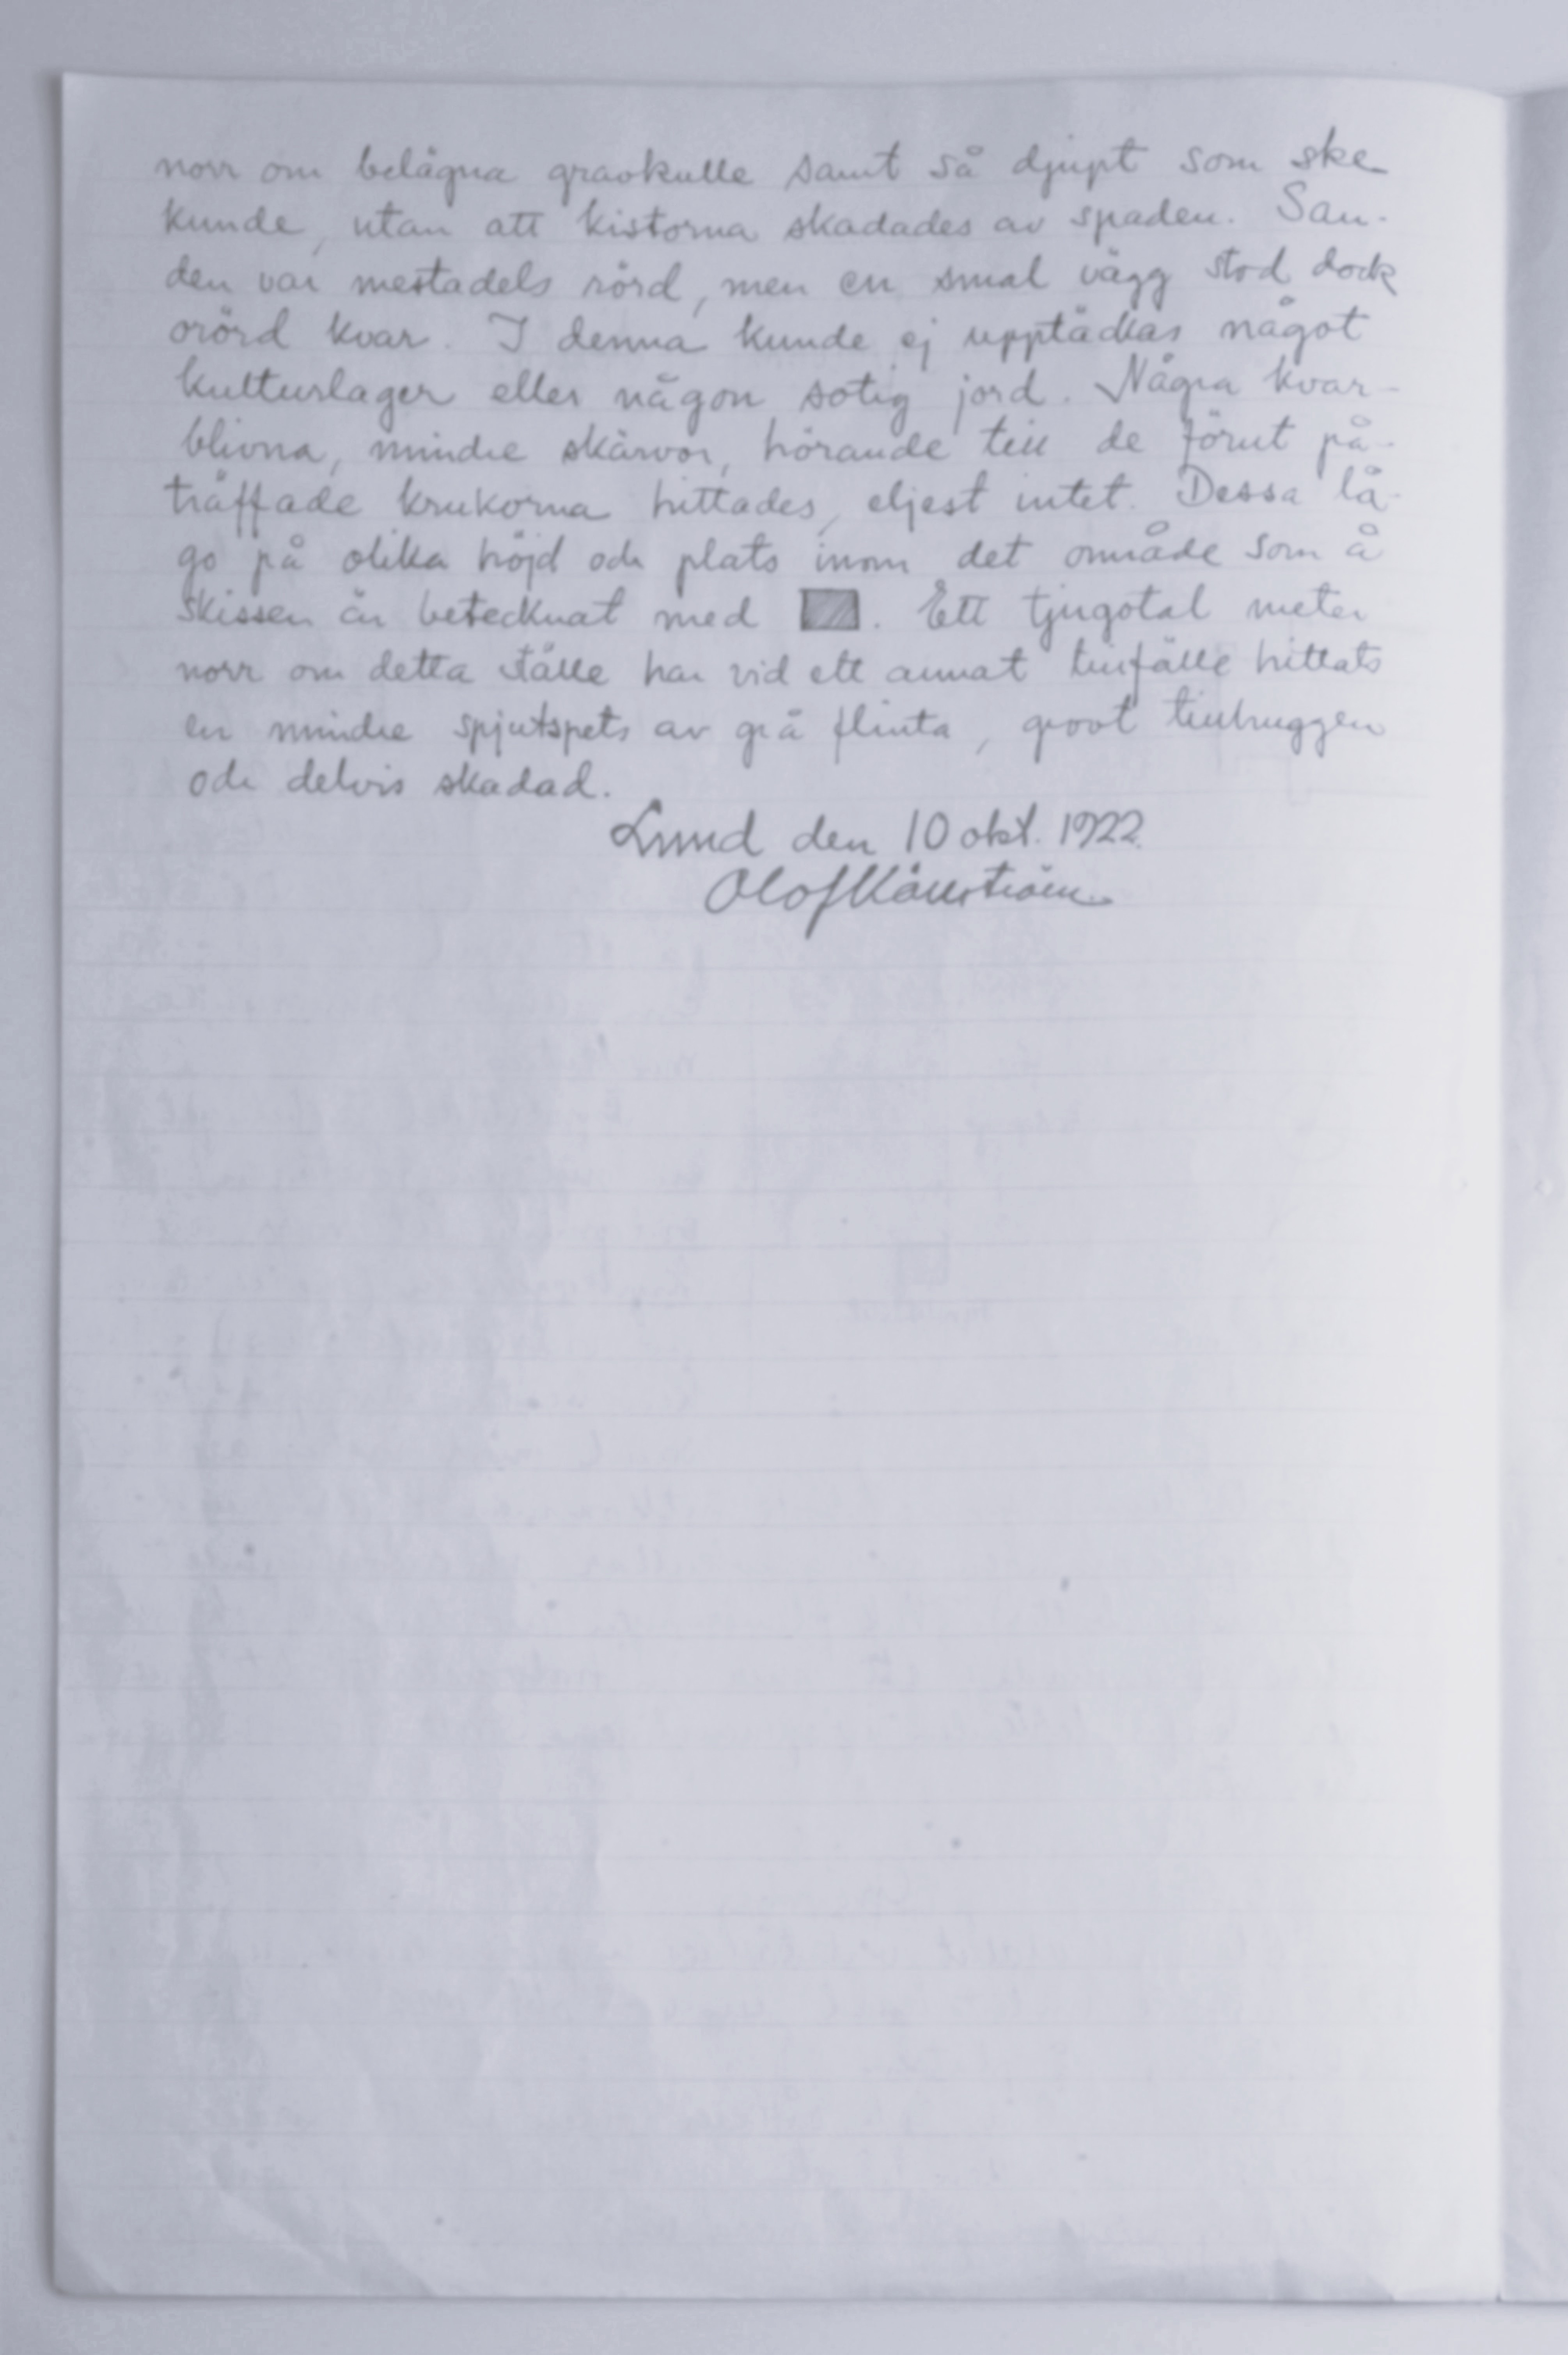 norr om belägna gravkulle samt så djupt som ske
kunde, utan att kistorna skadades av spaden. San-
den var mestadels rörd, men en smal vägg stod dock
orörd kvar. I denna kunde ej upptäckas något
kulturlager eller någon sotig jord. Några kvar-
blivna, mindre skärvor, hörande till de förut på-
träffade krukorna hittades, eljest intet. Dessa lå-
go på olika höjd och plats inom det område som å
skissen är betecknat med . Ett tjugotal meter
norr om detta ställe har vid ett annat tillfälle hittats
en mindre spjutspets av grå flinta, grovt tillhuggen
och delvis skadad.
Lund den 10 okt. 1922.
Olof Källström